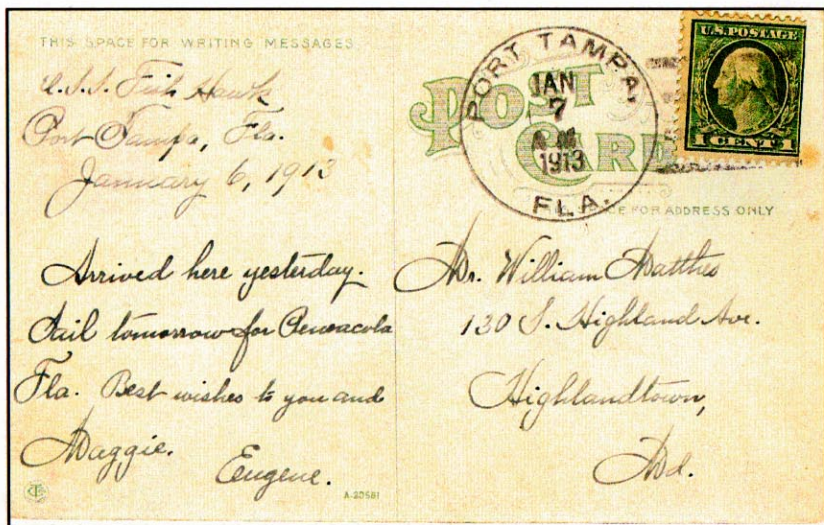 THIS SPACE FOR WRITING MESSAGES
U.S.S. Fish Hawk
Port Tampa, Fla.
January 6, 1913
Arrived here yesterday.
Sail tomorrow for Pensacola
Fla. Best wishes to you and
Maggie.
Eugene.
A-30581
POST
CARD
PORT TAMPA,
JAN
7
1913
FLA.
U.S. POSTAGE
1 CENT 1
SPACE FOR ADDRESS ONLY
Mr. William Matthes
130 S. Highland Ave.
Highlandtown,
Md.